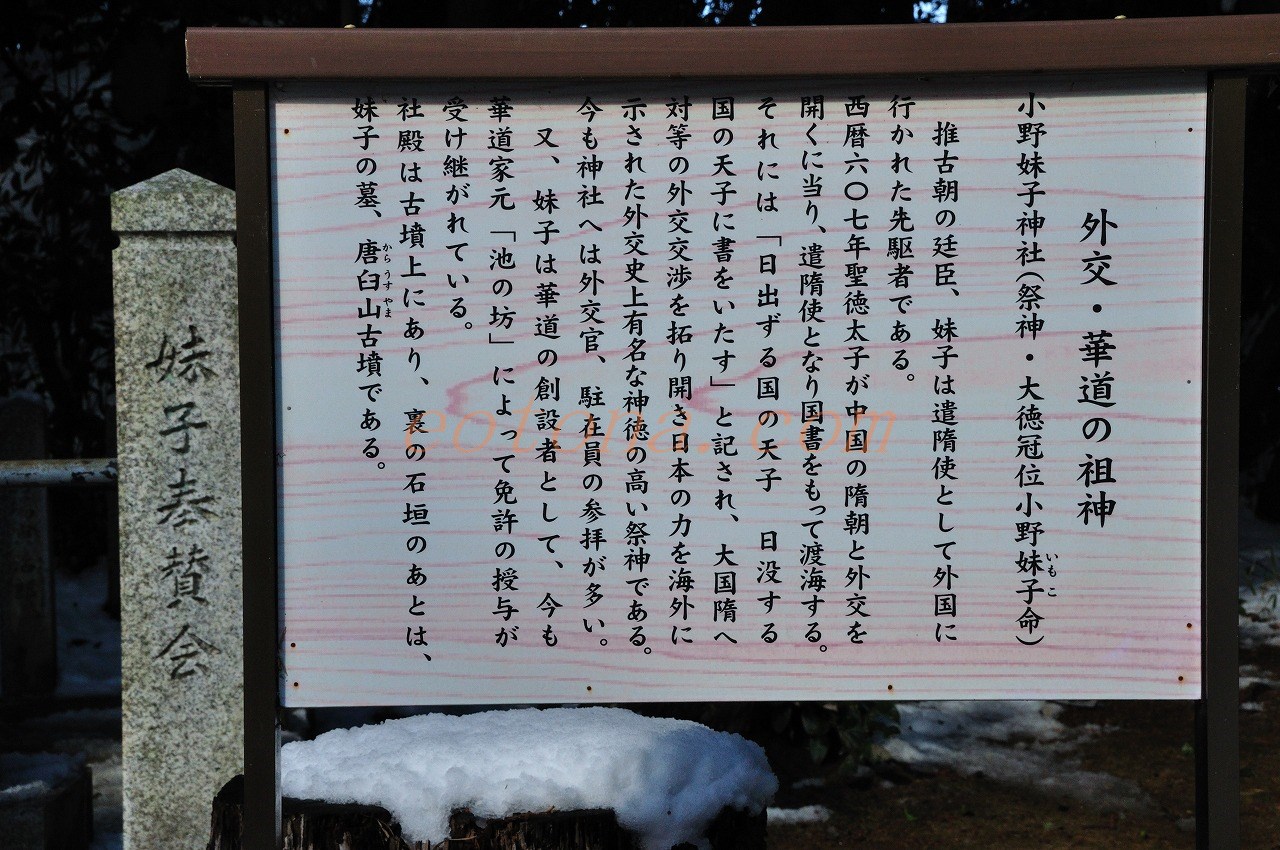 外交・華道の祖神
小野妹子神社(祭神・大徳冠位小野妹子命)
いもこ
推古朝の廷臣、妹子は遣隋使として外国に
行かれた先駆者である。
西暦六〇七年聖徳太子が中国の隋朝と外交を
開くに当り、遣隋使となり国書をもって渡海する。
それには「日出ずる国の天子 日没する
国の天子に書をいたす」と記され、大国隋へ
対等の外交交渉を拓り開き日本の力を海外に
示された外交史上有名な神徳の高い祭神である。
今も神社へは外交官、駐在員の参拝が多い。
又、妹子は華道の創設者として、今も
華道家元「池の坊」によって免許の授与が
受け継がれている。
社殿は古墳上にあり、裏の石垣のあとは、
妹子の墓、唐臼山古墳である。
からうすやま
妹子奉賛会
eotona.com